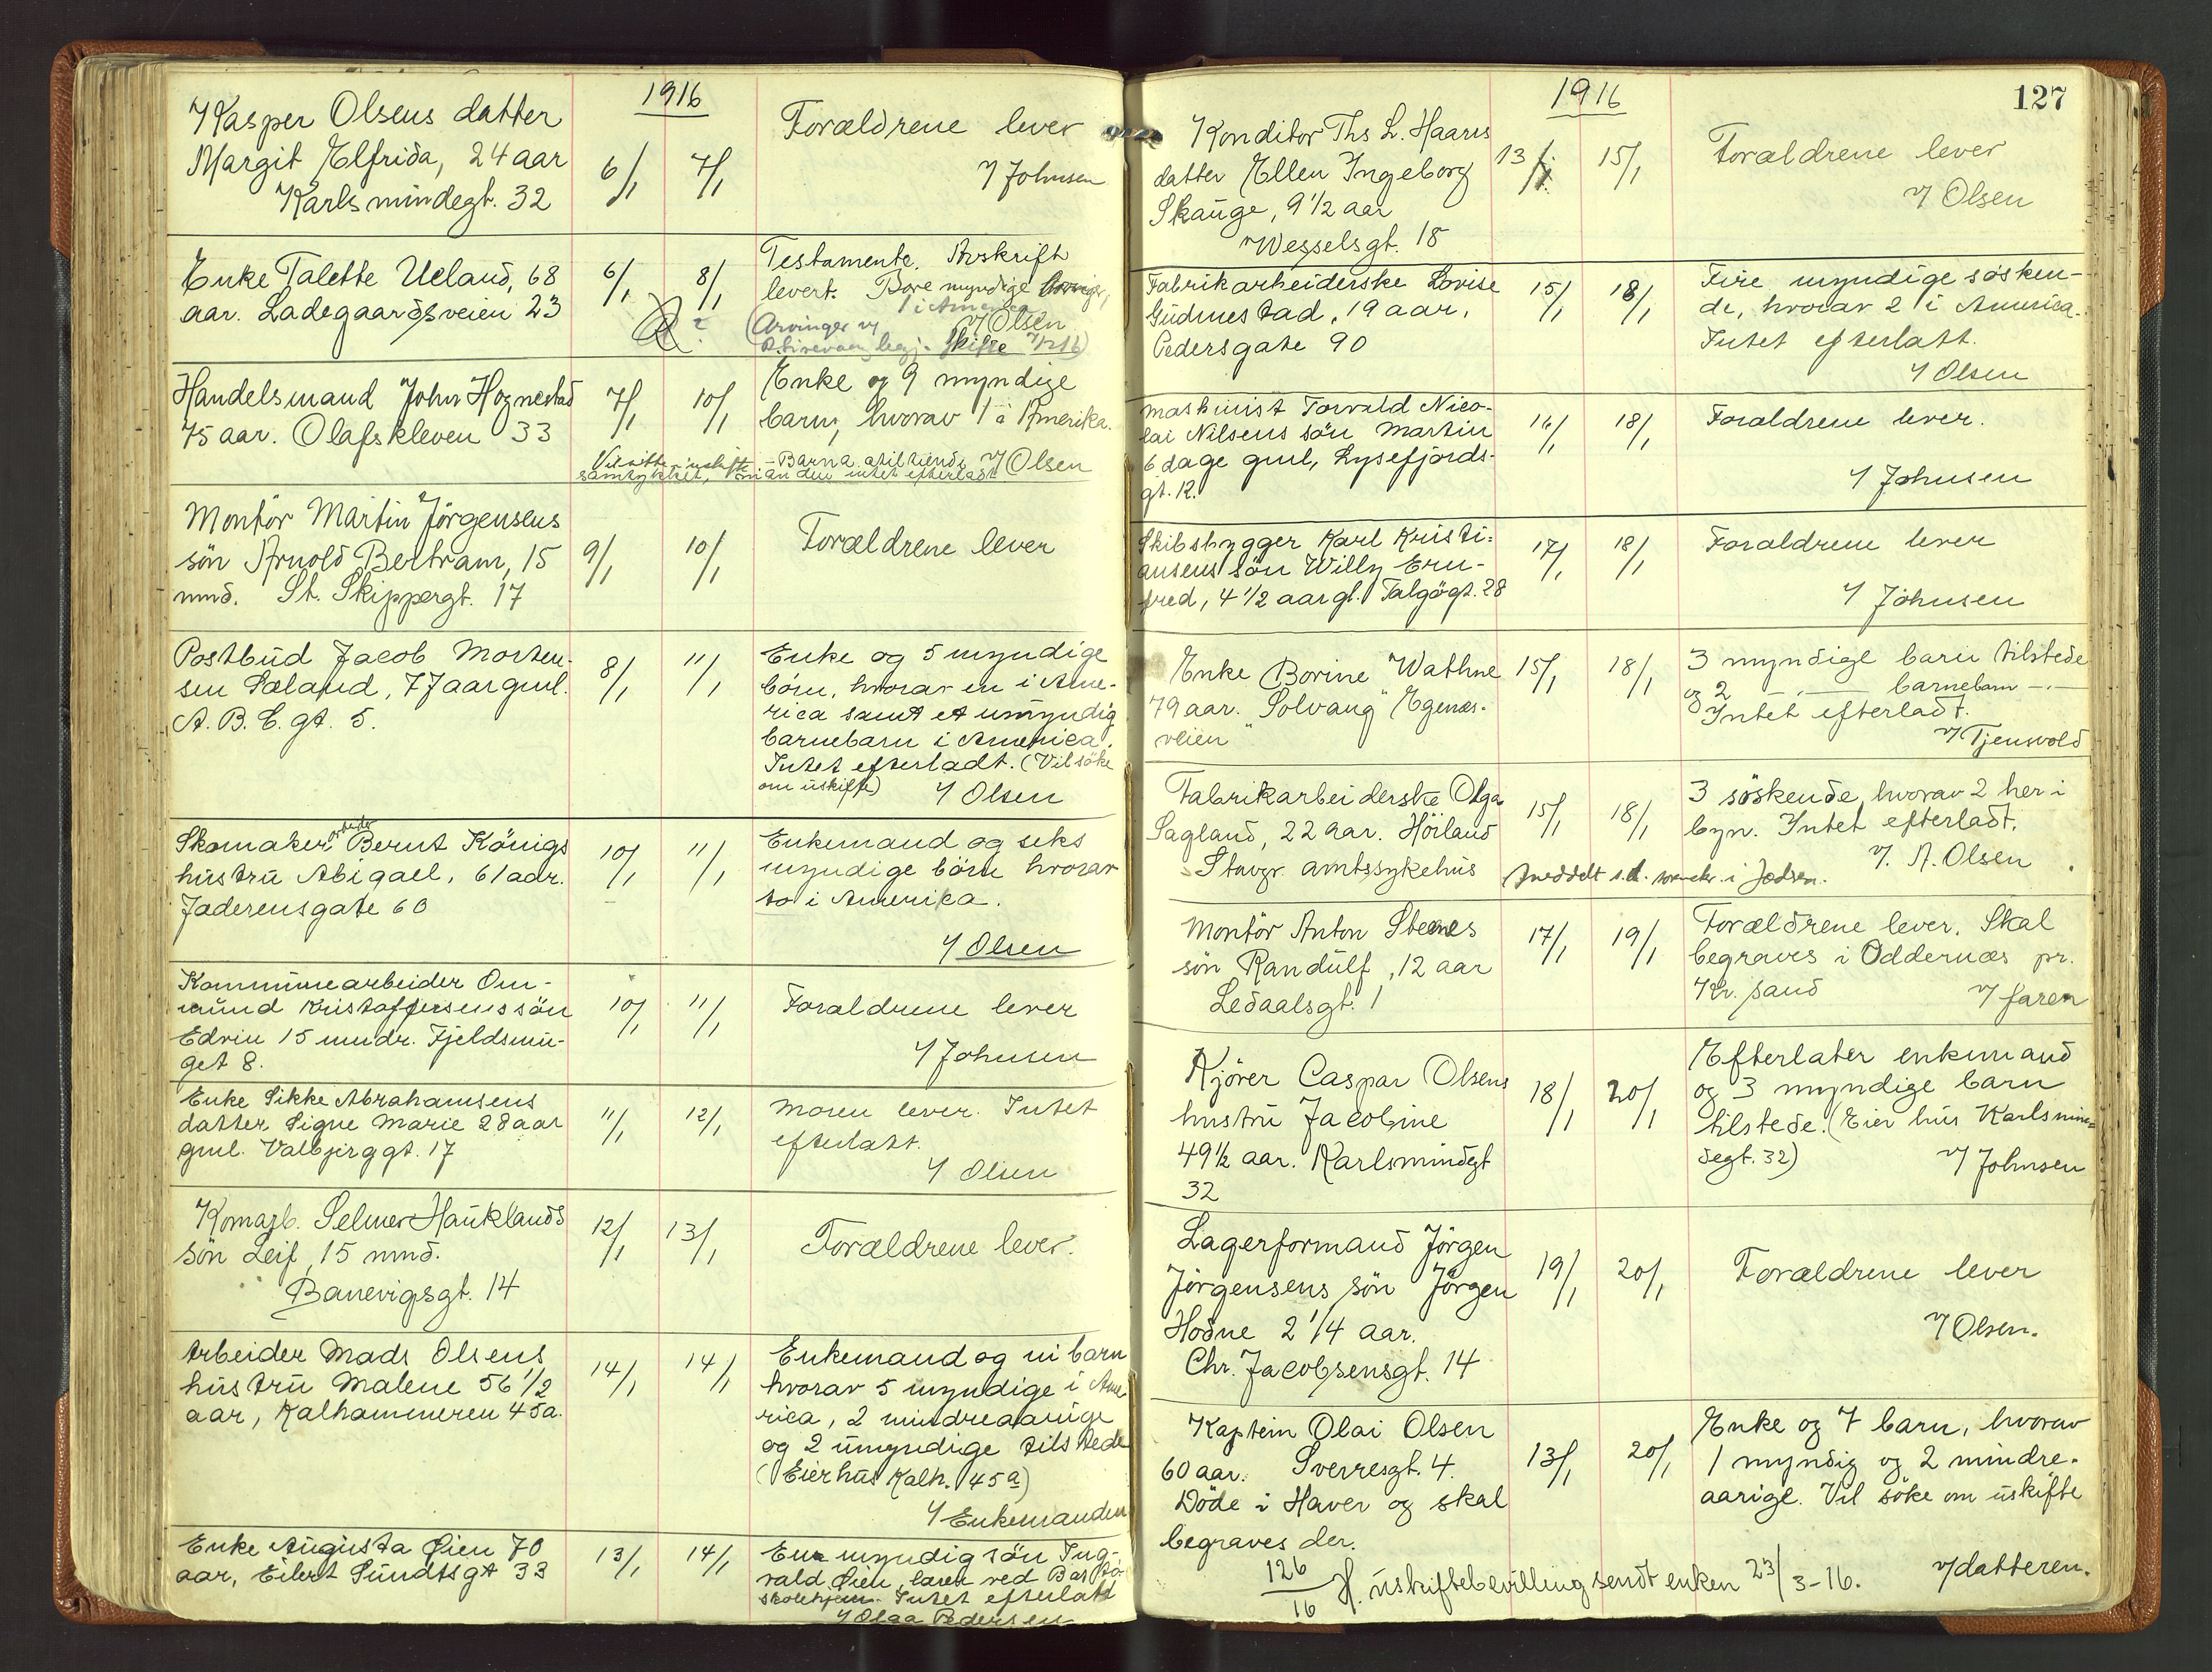 1916
Kasper Olsens datter
Margit Elfrida, 24 aar
Karlsmindegt. 32
6/1
7/1
Forældrene lever
v/ Johnsen
Enke Talette Ueland, 68
aar. Ladegaardsveien 23
6/1
8/1
Testamente. Avskrift
levert. Bare myndige
1 i Amerika
v/ Olsen
(Arvinger
Skifte
Handelsmand John Hognestad
75 aar. Olafskleven 33
7/1
10/1
Enke og 9 myndige
barn, hvorav 1 i Amerika.
v/ Olsen
Vil sitte i uskifte – Barna
samtykket, intet efterladt
Montör Martin Jörgensens
sön Arnold Bertram, 15
mnd. St. Skippergt. 17
9/1
10/1
Forældrene lever
Postbud Jacob Morten-
sen Sæland, 77 aar gml.
A. B. C. gt. 5.
8/1
11/1
Enke og 5 myndige
börn, hvorav en i Ame-
rica samt et umyndig
barnebarn i America.
Intet efterladt. (Vil söke
om uskifte)
v/ Olsen
Skomaker arbeider Bernt Königs
hustru Abigael, 61 aar.
Jæderensgate 60
10/1
11/1
Enkemand og seks
myndige börn hvorav
to i America.
v/ Olsen
Kommunearbeider Om-
mund Kristoffersens sön
Edvin 15 mndr. Fjeldsmu-
get 8.
10/1
11/1
Forældrene lever
v/ Johnsen
Enke Sikke Abrahamsens
datter Signe Marie 28 aar
gml. Valbjerggt. 17
11/1
12/1
Moren lever. Intet
efterlatt.
v/ Olsen
Komarb. Selmer Hauklands
sön Leif, 15 mnd.
Banevigsgt. 14
12/1
13/1
Forældrene lever.
Arbeider Mads Olsens
hustru Malene 56 1/2
aar, Kalhammeren 45a.
14/1
14/1
Enkemand og ni barn
hvorav 5 myndige i Ame
rica, 2 mindreaarige
og 2 umyndige tilstede
(Eier hus Kalh. 45a)
v/ Enkemanden
Enke Augusta Øien 70
aar, Eilert Sundtsgt 33
13/1
14/1
En myndig sön Ing-
vald Øien, lærer ved
skolehjem. Intet efterlatt
v/ Olga Pedersen
1916
127
Konditor Ths L. Haaers
datter Ellen Ingeborg
Skauge, 9 1/2 aar
Wesselsgt. 18
13/1
15/1
Forældrene lever
v/ Olsen
Fabrikarbeiderske Lovise
Gudmestad, 19 aar,
Pedersgate 90
15/1
18/1
Fire myndige sösken-
de, hvorav 2 i America.
Intet efterlatt.
v/ Olsen
Maskinist Torvald Nico-
lai Nilsens sön Martin
6 dage gml, Lysefjords-
gt. 12.
16/1
18/1
Forældrene lever.
v/ Johnsen
Skibsbygger Karl Kristi-
ansens sön Willy Ern-
fred, 4 1/2 aar gl. Talgögt. 28
17/1
18/1
Forældrene lever
v/ Johnsen
Enke Borine Wathne
79 aar. "Solvang" Egenæs-
veien
15/1
18/1
3 myndige barn tilstede
og 2 —"— barnebarn —"—
Intet efterladt.
v/ Tjensvold
Fabrikarbeiderske Olga
Sagland, 22 aar. Höiland
Stavgr. amtssykehus
15/1
18/1
3 söskende, hvorav 2 her i
byn. Intet efterladt.
v/. A. Olsen
Meddelt s.d. i Jædren.
Montör Anton Steenes
sön Randulf, 12 aar
Ledaalsgt. 1
17/1
19/1
Forældrene lever. Skal
begraves i Oddernæs pr.
Kr. sand
v/ faren
Kjörer Caspar Olsens
hustru Jacobine
49 1/2 aar. Karlsmindegt
32
18/1
20/1
Efterlater enkemand
og 3 myndige barn
tilstede. (Eier hus Karlsmin-
degt. 32)
v/ Johnsen
Lagerformand Jörgen
Jörgensens sön Jörgen
Hodne 2 1/4 aar.
Chr. Jacobsensgt. 14
19/1
20/1
Forældrene lever
v/ Olsen.
Kaptein Olai Olsen
60 aar. Sverresgt. 4.
Döde i Haver og skal
begraves der.
13/1
20/1
Enke og 7 barn, hvorav
1 myndig og 2 mindre-
aarige. Vil söke om uskifte
v/ datteren.
126/16 H. uskiftebevilling sendt enken 23/3-16.